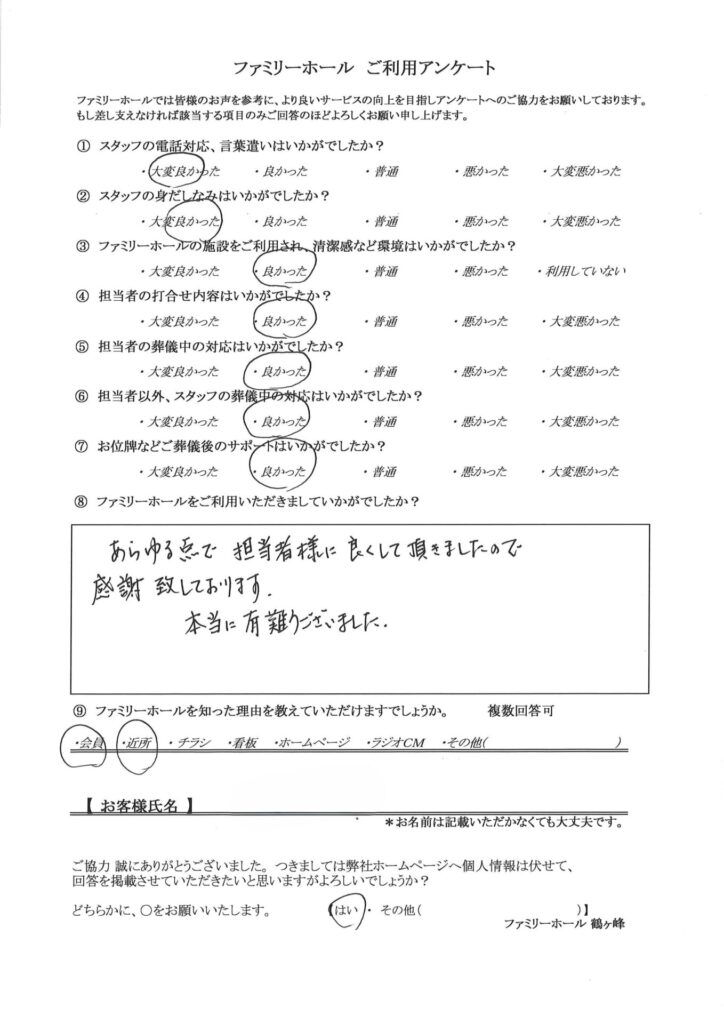 ファミリーホール ご利用アンケート
ファミリーホールでは皆様のお声を参考に、より良いサービスの向上を目指しアンケートへのご協力をお願いしております。
もし差し支えなければ該当する項目のみご回答のほどよろしくお願い申し上げます。
① スタッフの電話対応、言葉遣いはいかがでしたか？
・大変良かった ・良かった ・普通 ・悪かった ・大変悪かった
② スタッフの身だしなみはいかがでしたか？
・大変良かった ・良かった ・普通 ・悪かった ・大変悪かった
③ ファミリーホールの施設をご利用され、清潔感など環境はいかがでしたか？
・大変良かった ・良かった ・普通 ・悪かった ・利用していない
④ 担当者の打合せ内容はいかがでしたか？
・大変良かった ・良かった ・普通 ・悪かった ・大変悪かった
⑤ 担当者の葬儀中の対応はいかがでしたか？
・大変良かった ・良かった ・普通 ・悪かった ・大変悪かった
⑥ 担当者以外、スタッフの葬儀中の対応はいかがでしたか？
・大変良かった ・良かった ・普通 ・悪かった ・大変悪かった
⑦ お位牌などご葬儀後のサポートはいかがでしたか？
・大変良かった ・良かった ・普通 ・悪かった ・大変悪かった
⑧ ファミリーホールをご利用いただきましていかがでしたか？
あらゆる点で 担当者様に 良くして頂きましたので
感謝 致しております.
本当に有難うございました.
⑨ ファミリーホールを知った理由を教えていただけますでしょうか。 複数回答可
・会員 ・近所 ・チラシ ・看板 ・ホームページ ・ラジオCM ・その他( )
【 お客様氏名 】
＊お名前は記載いただかなくても大丈夫です。
ご協力 誠にありがとうございました。つきましては弊社ホームページへ個人情報は伏せて、
回答を掲載させていただきたいと思いますがよろしいでしょうか？
どちらかに、○をお願いいたします。 【はい ・ その他( )】
ファミリーホール 鶴ヶ峰